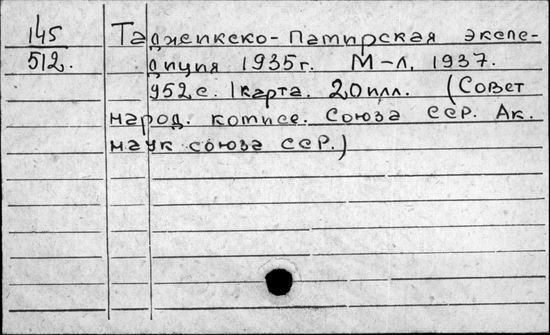 145 Таджикско-Памирская экспе-
512. диция 1935г. М-л, 1937.
952с. 1карта. 20илл. (Совет
народ. комисс. Союза ССР. Ак.
наук союза ССР.)